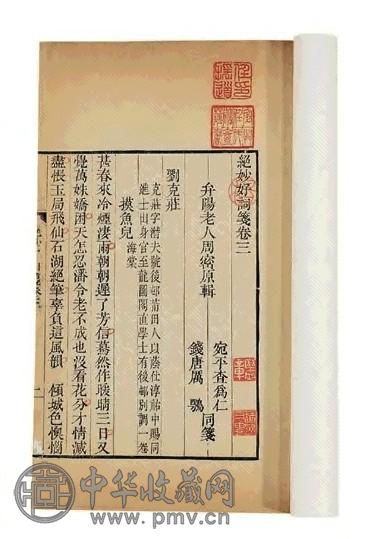 絕妙好詞箋卷三
弁陽老人周密原輯
宛平查爲仁
錢唐厲鶚
同箋
劉克莊
克莊字潛夫號後邨莆田人以蔭仕淳祐中賜同
進士出身官至龍圖閣直學士有後邨別調一卷
摸魚兒 海棠
甚春來冷煙凄雨朝朝遲了芳信驀然作暖晴三日又
覺萬姝嬌困天怎忍潘令老不成也沒看花分才情減
盡悵玉局飛仙石湖絕筆辜負這風韻 傾城色懊惱
中华收藏网
www.pmv.cn